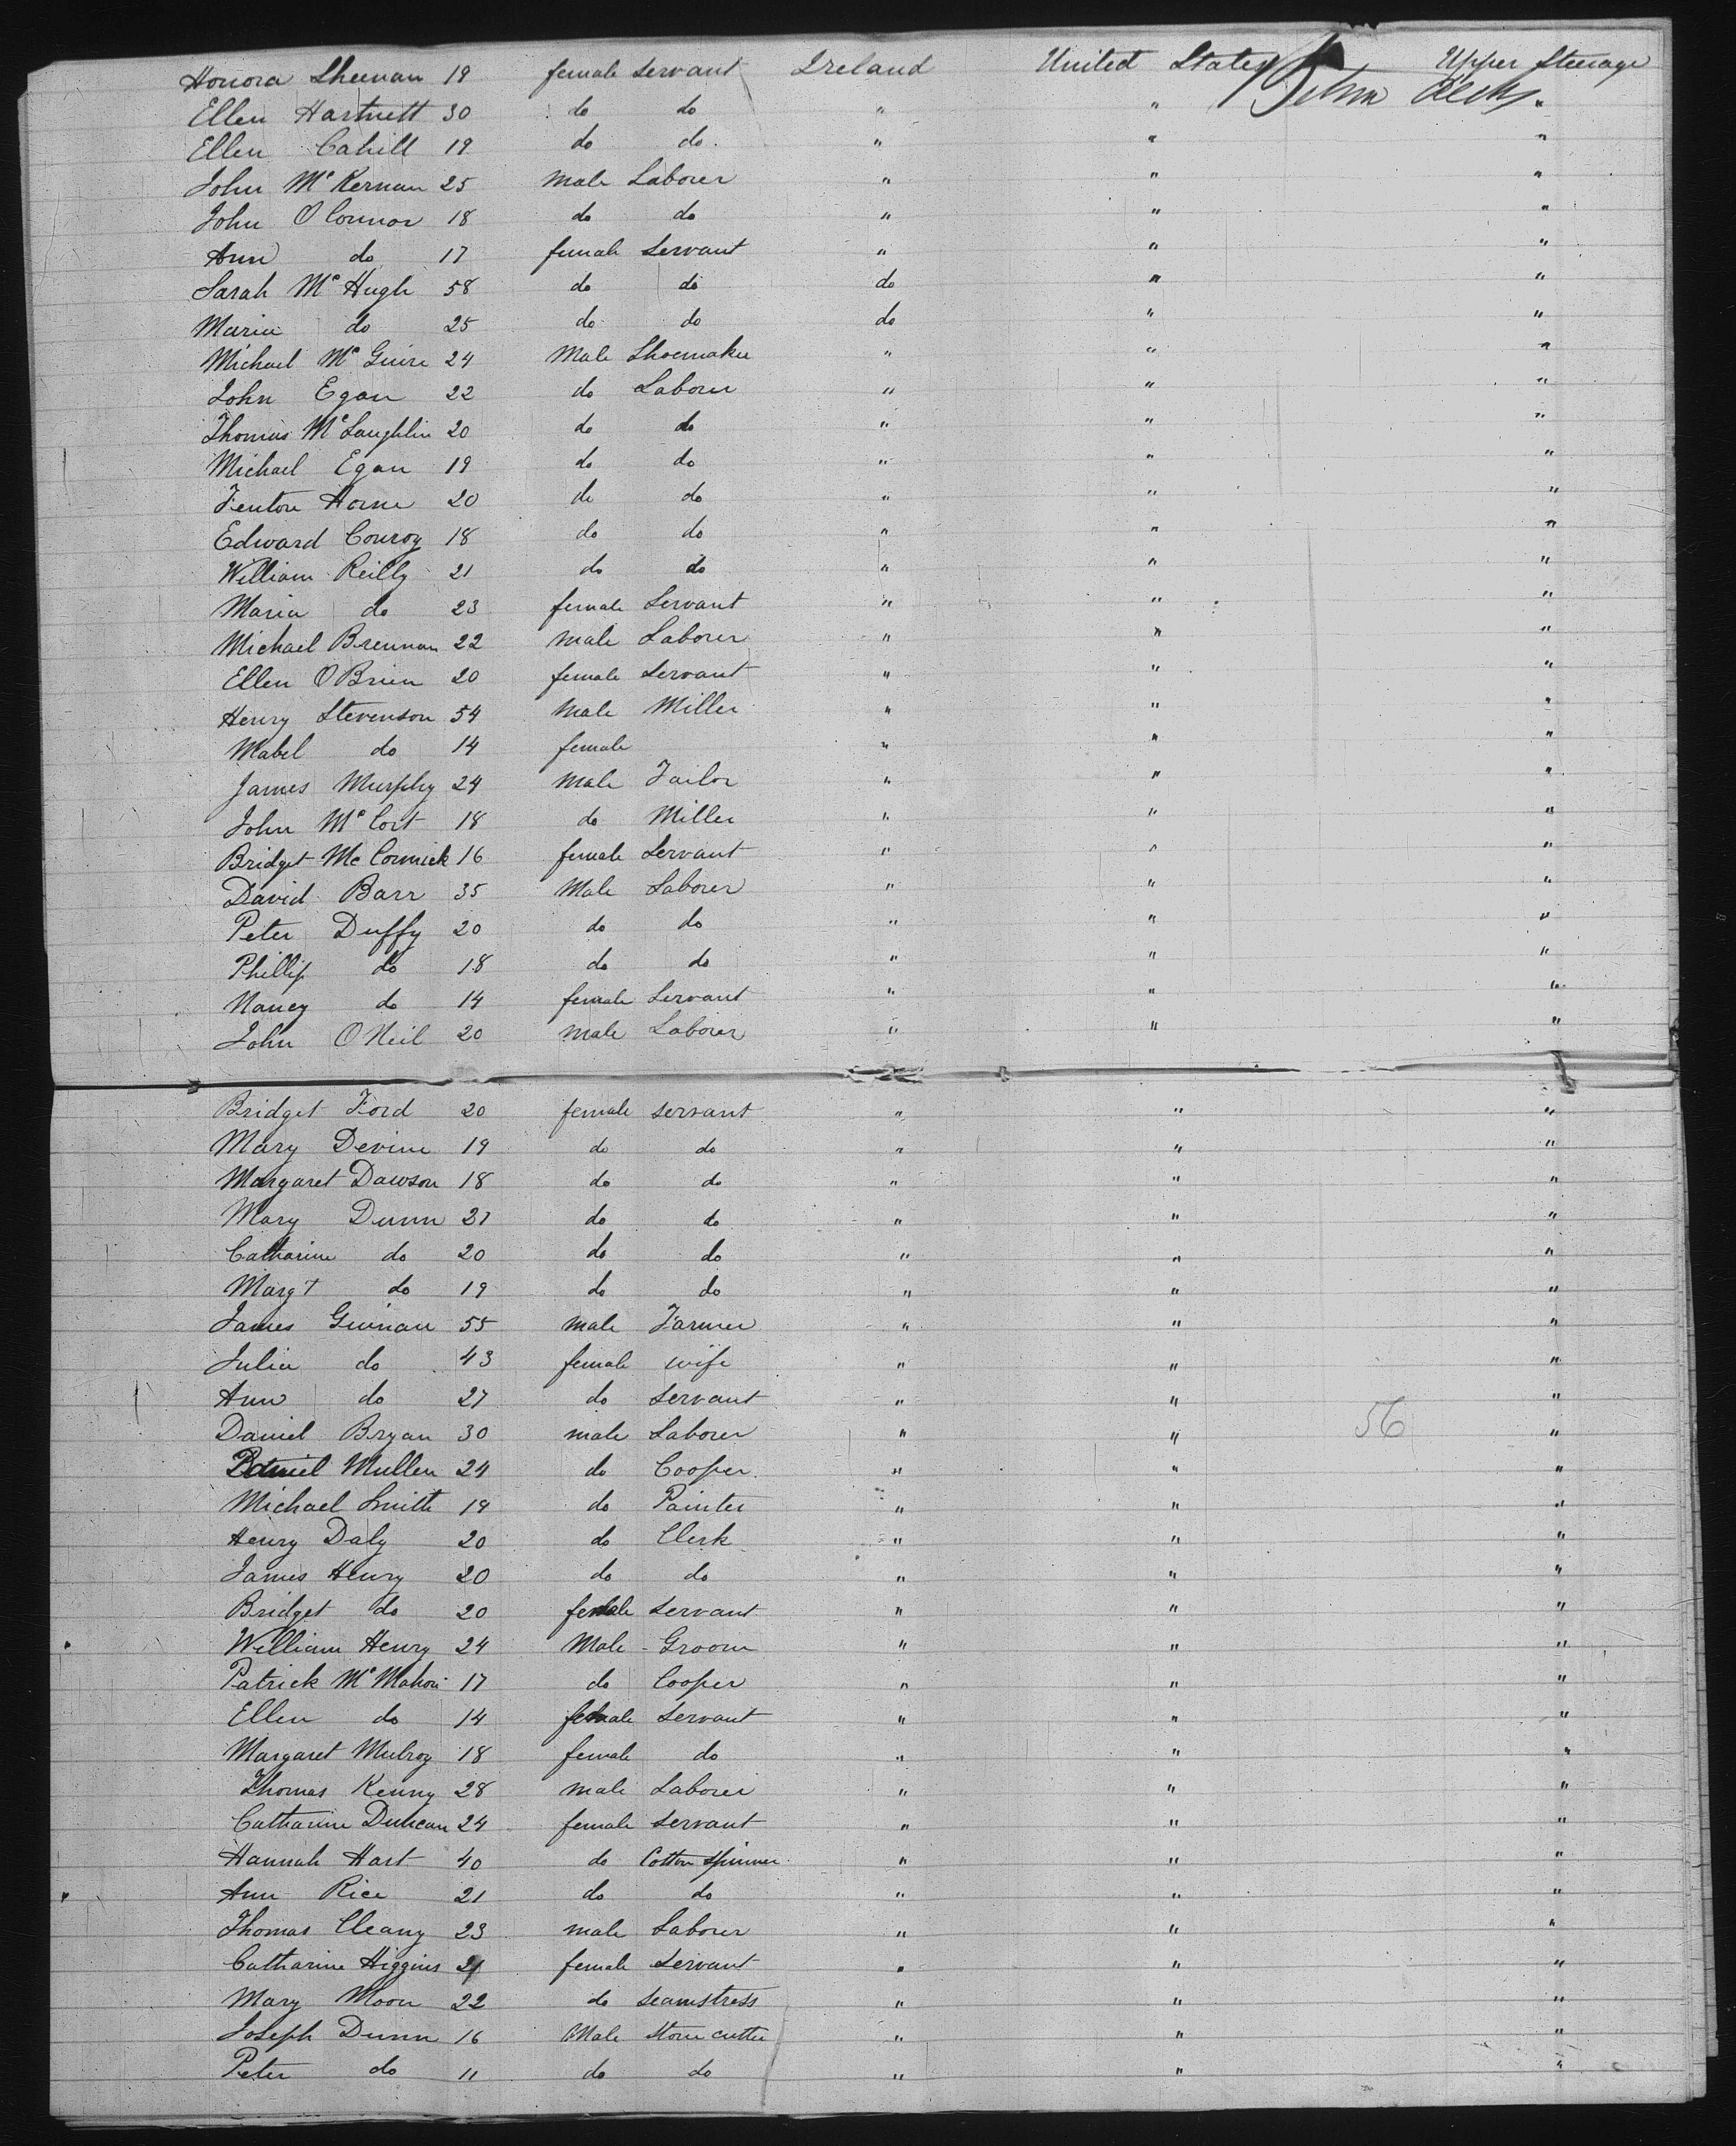 Honora Sheenan 19 female servant Ireland United States Upper Steerage
Ellen Hartnett 30 do do " " Between Decks "
Ellen Cahill 19 do do " " "
John Mc Kernan 25 Male Laborer " " "
John O Connor 18 do do " " "
Ann do 17 female Servant " " "
Sarah Mc Hugh 58 do do do " "
Maria do 25 do do do " "
Michael Mc Guire 24 Male Shoemaker " " "
John Egan 22 do Laborer " " "
Thomas Mc Laughlin 20 do do " " "
Michael Egan 19 do do " " "
Fenton Horne 20 do do " " "
Edward Conroy 18 do do " " "
William Reilly 21 do do " " "
Maria do 23 female Servant " " "
Michael Brennan 22 male Laborer " " "
Ellen O Brien 20 female servant " " "
Henry Stevenson 54 Male Miller " " "
Mabel do 14 female " " "
James Murphy 24 Male Tailor " " "
John Mc Cort 18 do Miller " " "
Bridget Mc Cormick 16 female Servant " " "
David Barr 35 Male Laborer " " "
Peter Duffy 20 do do " " "
Phillip do 18 do do " " "
Nancy do 14 female Servant " " "
John O Neil 20 male Laborer " " "
Bridget Ford 20 female servant " " "
Mary Devine 19 do do " " "
Margaret Dawson 18 do do " " "
Mary Dunn 21 do do " " "
Catharine do 20 do do " " "
Margt do 19 do do " " "
James Guinan 55 male Farmer " " "
Julia do 43 female wife " " "
Ann do 27 do servant " " "
Daniel Bryan 30 male Laborer " " 56 "
Mullen 24 do Cooper " " "
Michael Smith 19 do Painter " " "
Henry Daly 20 do Clerk " " "
James Henry 20 do do " " "
Bridget do 20 female servant " " "
William Henry 24 Male Groom " " "
Patrick Mc Mahon 17 do Cooper " " "
Ellen do 14 female Servant " " "
Margaret Mulroy 18 female do " " "
Thomas Kenny 28 male Laborer " " "
Catharine Duncan 24 female servant " " "
Hannah Hart 40 do Cotton Spinner " " "
Ann Rice 21 do do " " "
Thomas Cleary 23 male Laborer " " "
Catharine Higgins 21 female servant " " "
Mary Moon 22 do seamstress " " "
Joseph Dunn 16 Male Stone cutter " " "
Peter do 11 do do " " "